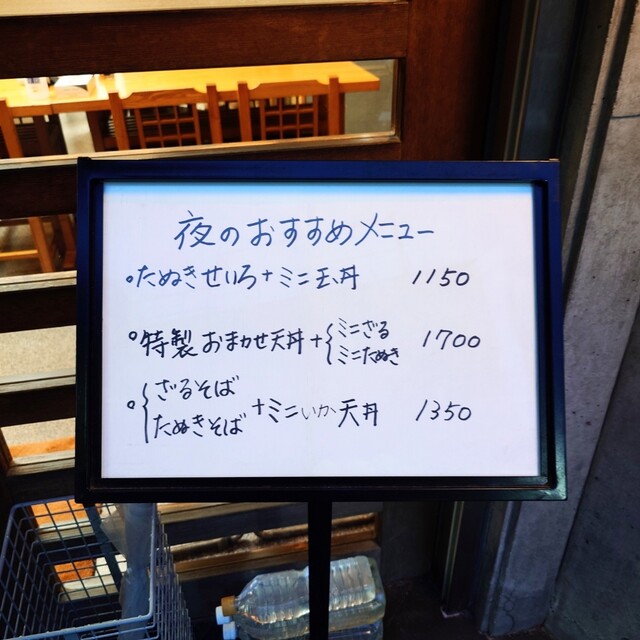 夜のおすすめメニュー
○たぬきせいろ+ミニ玉丼 1150
○特製おまかせ天丼+{ミニざる 1700
ミニたぬき
○{ざるそば
たぬきそば +ミニいか天丼 1350